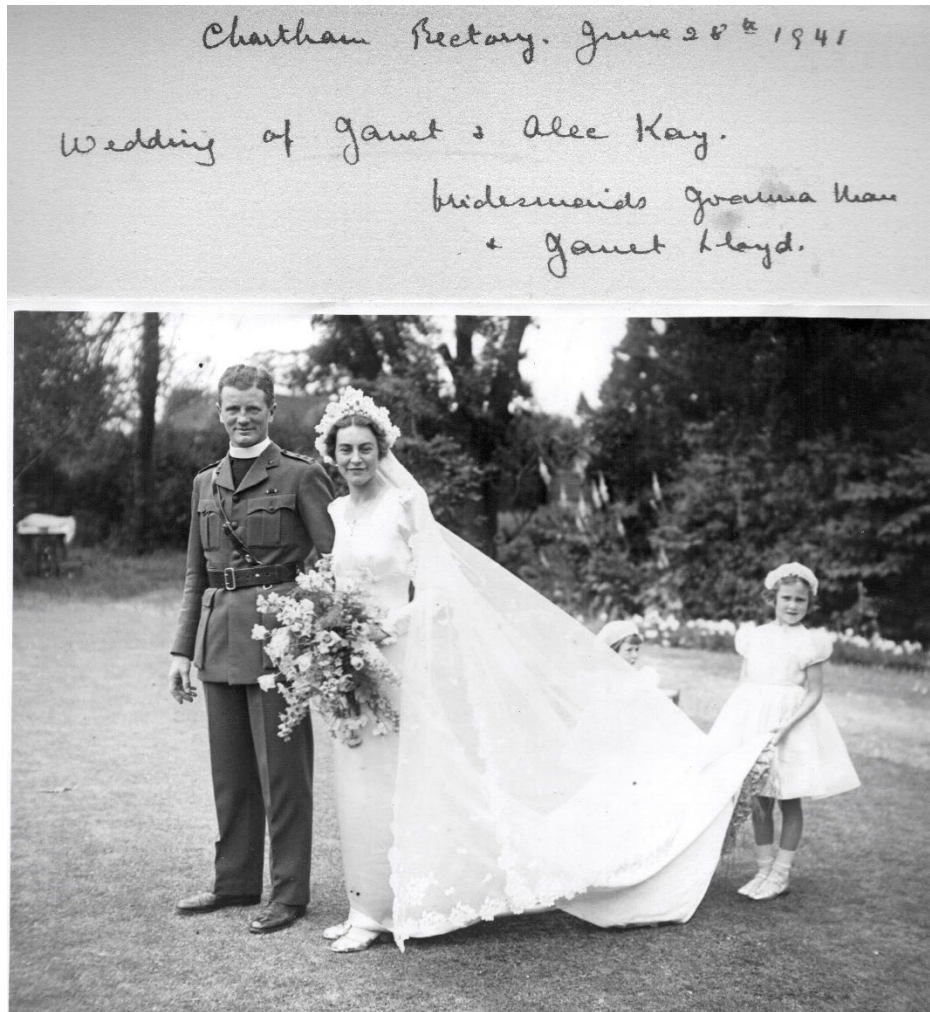 Chartham Rectory. June 28th 1941
Wedding of Janet & Alec Kay.
bridesmaids Joanna Man
& Janet Lloyd.